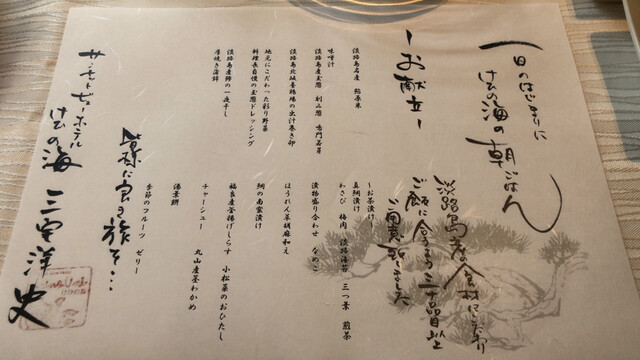 一日のはじまりに
けひの海の朝ごはん
淡路島産の食材にこだわり
ご飯に合うよう二十品目以上
ご用意致しました
ーお献立ー
淡路島名産 鮎原米
味噌汁
淡路島産玉葱 刺三葱 鳴門若芽
淡路島北坂養鶏場の出汁巻き卵
地元にこだわった彩り野菜
料理長自慢の玉葱ドレッシング
淡路島産鰆の一夜干し
厚焼き蒲鉾
〜お茶漬け〜
真鯛漬け
わさび 梅肉 淡路海苔 三つ葉 煎茶
漬物盛り合わせ なめこ
ほうれん草胡麻和え
鯛の南蛮漬け
福良産釜揚げしらす 小松菜のおひたし
チャーシュー 丸山産茎わかめ
湯葉餅
季節のフルーツ ゼリー
皆様に良き旅を…
サンセットビューホテル
けひの海 三宅洋史